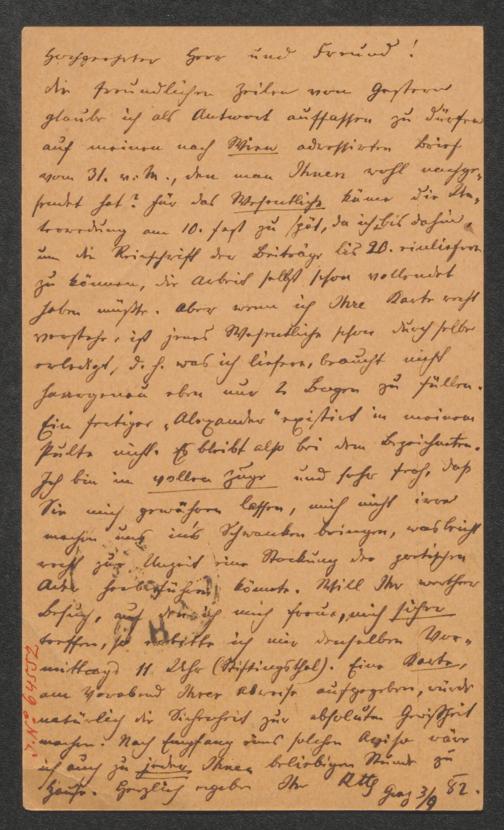 Hochgeehrter Herr und Freund!
die freundlichen Zeilen von Gestern
glaube ich als Antwort auffassen zu dürfen
auf meinen nach Wien adressirten Brief
vom 31. v. M., den man Ihnen wohl nachge-
sendet hat? für das Wesentliche käme die Un-
terredung am 10. fast zu spät, da ich, bis dahin
um die Reinschrift der Beiträge bis 20. einliefern
zu können, die Arbeit selbst schon vollendet
haben müßte. Aber wenn ich Ihre Karte recht
verstehe, ist jenes Wesentliche schon durch selbe
erledigt, d. h. was ich liefere, braucht nicht
haargenau eben nur 2 Bogen zu füllen.
Ein fertiger „Alexander" existirt in meinem
Pulte nicht. Es bleibt also bei dem Bezeichneten.
Ich bin im vollen Zuge und sehr froh, daß
Sie mich gewähren lassen, mich nicht irre
machen und in's Schwanken bringen, was leicht
recht zur Unzeit eine Stockung der poetischen
Ader herbeiführen könnte. Will Ihr werther
Besuch, auf den ich mich freue, mich sicher
treffen, so erbitte ich mir denselben Vor-
mittags 11 Uhr (Stiftingsthal). Eine Karte,
am Vorabend Ihrer Abreise aufgegeben, würde
natürlich die Sicherheit zur absoluten Gewißheit
machen. Nach Empfang eines solchen Aviso wäre
ich auch zu jeder Ihnen beliebigen Stunde zu
Hause. Herzlich ergeben Ihr Graz 3/9 82.
J. No 64552